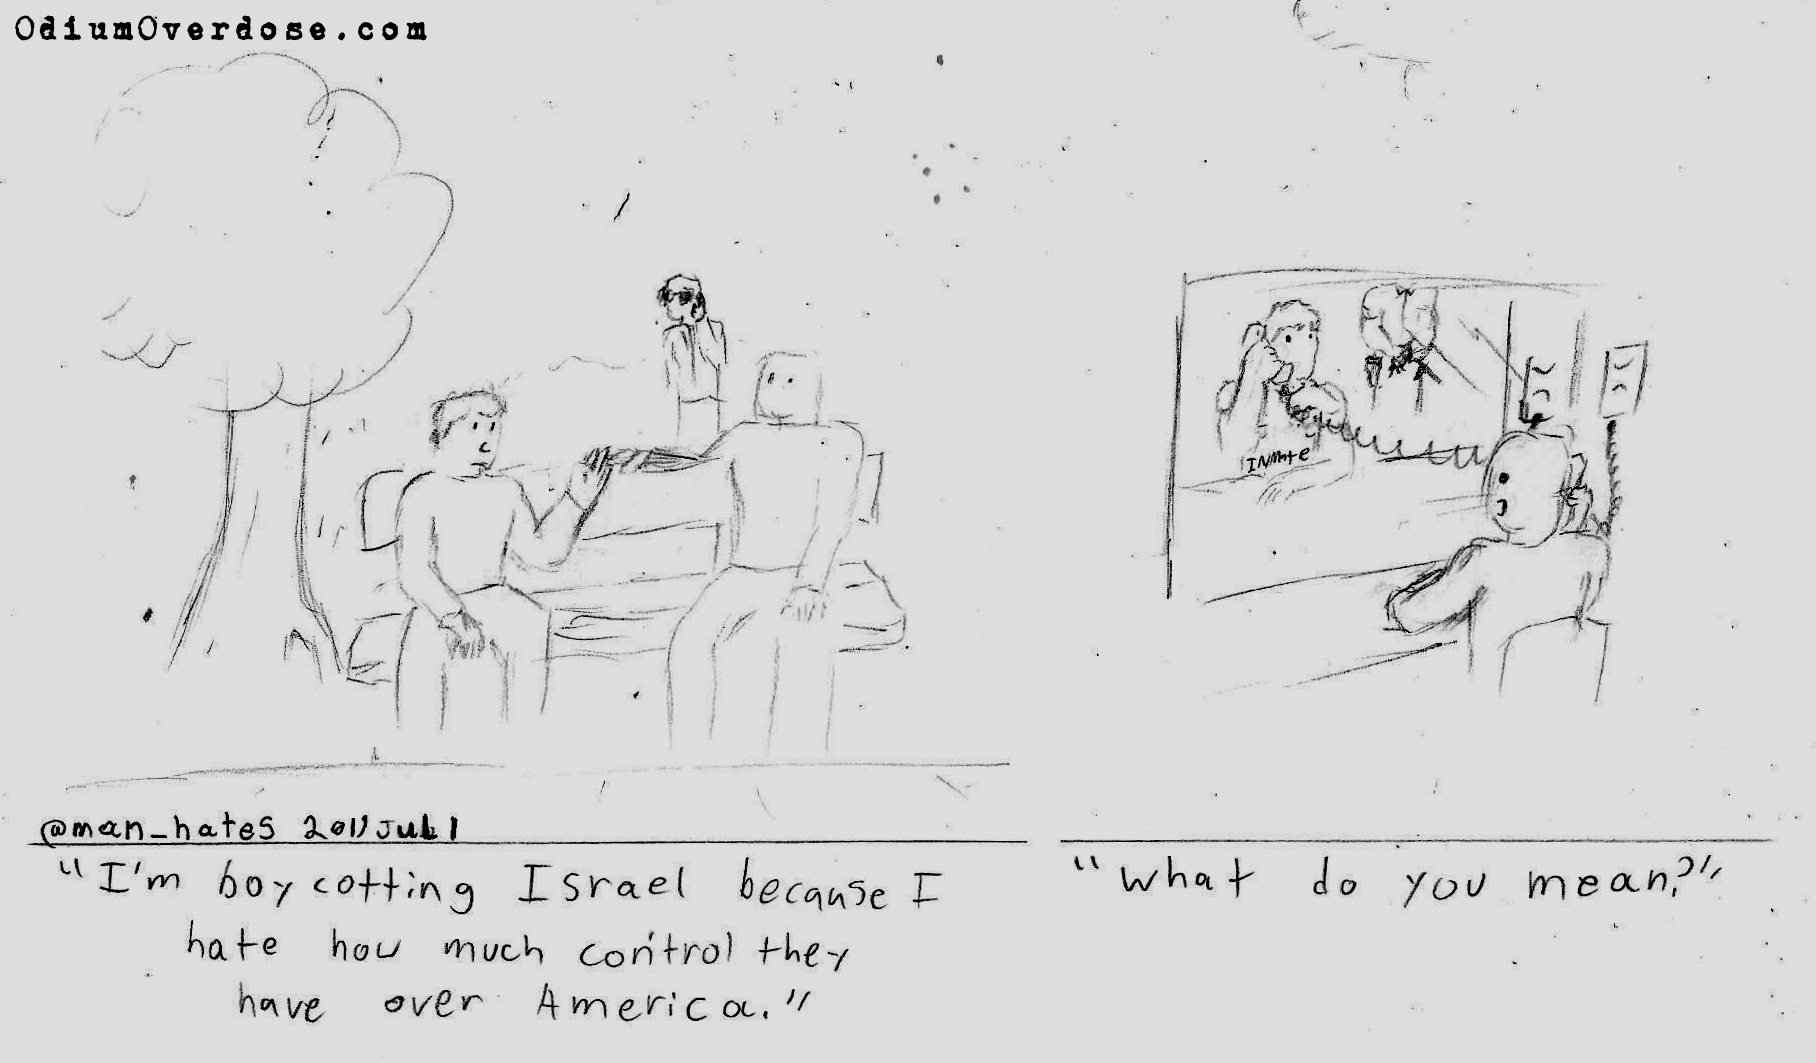 OdiumOverdose.com
INMATE
@man_hates 2011 JUL 1
"I'm boycotting Israel because I
hate how much control they
have over America."
"What do you mean?"